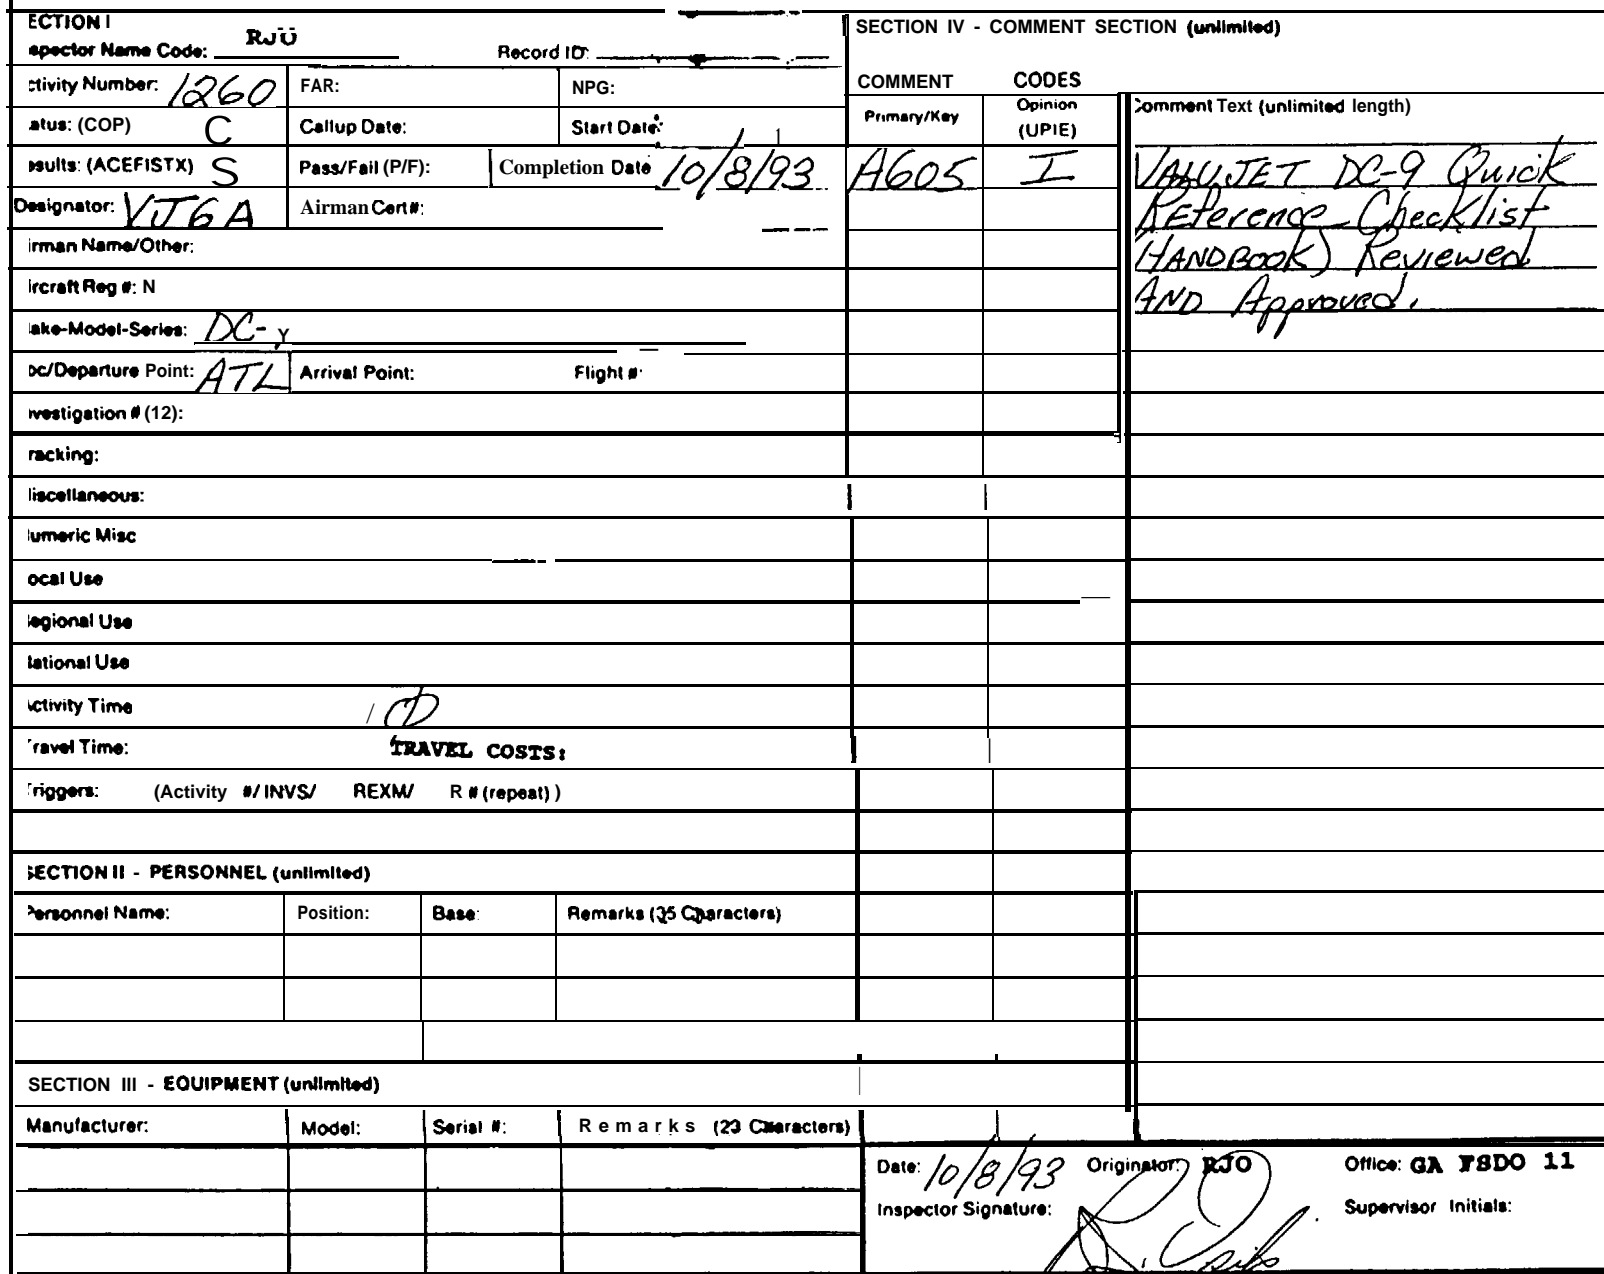 ECTION I
spector Name Code: RJO Record ID:
ctivity Number: 1260 FAR: NPG:
atus: (COP) C Callup Date: Start Date:
esults: (ACEFISTX) S Pass/Fail (P/F): Completion Date 10/8/93
Designator: VJ6A Airman Cert#:
irman Name/Other:
ircraft Reg #: N
lake-Model-Series: DC-y
oc/Departure Point: ATL Arrival Point: Flight #:
nvestigation # (12):
racking:
liscellaneous:
lumeric Misc
ocal Use
legional Use
lational Use
Activity Time
Travel Time: TRAVEL COSTS:
Triggers: (Activity #/ INVS/ REXM/ R # (repeat) )
SECTION II - PERSONNEL (unlimited)
Personnel Name: Position: Base: Remarks (35 Characters)
SECTION III - EQUIPMENT (unlimited)
Manufacturer: Model: Serial #: Remarks (23 Characters)
SECTION IV - COMMENT SECTION (unlimited)
COMMENT CODES
Primary/Key Opinion
(UPIE)
A605 I
Comment Text (unlimited length)
VALUJET DC-9 Quick
Reference Checklist
HANDBOOK) Reviewed
AND Approved.
Date: 10/8/93 Originator: RJO Office: GA FSDO 11
Inspector Signature: Supervisor Initials: